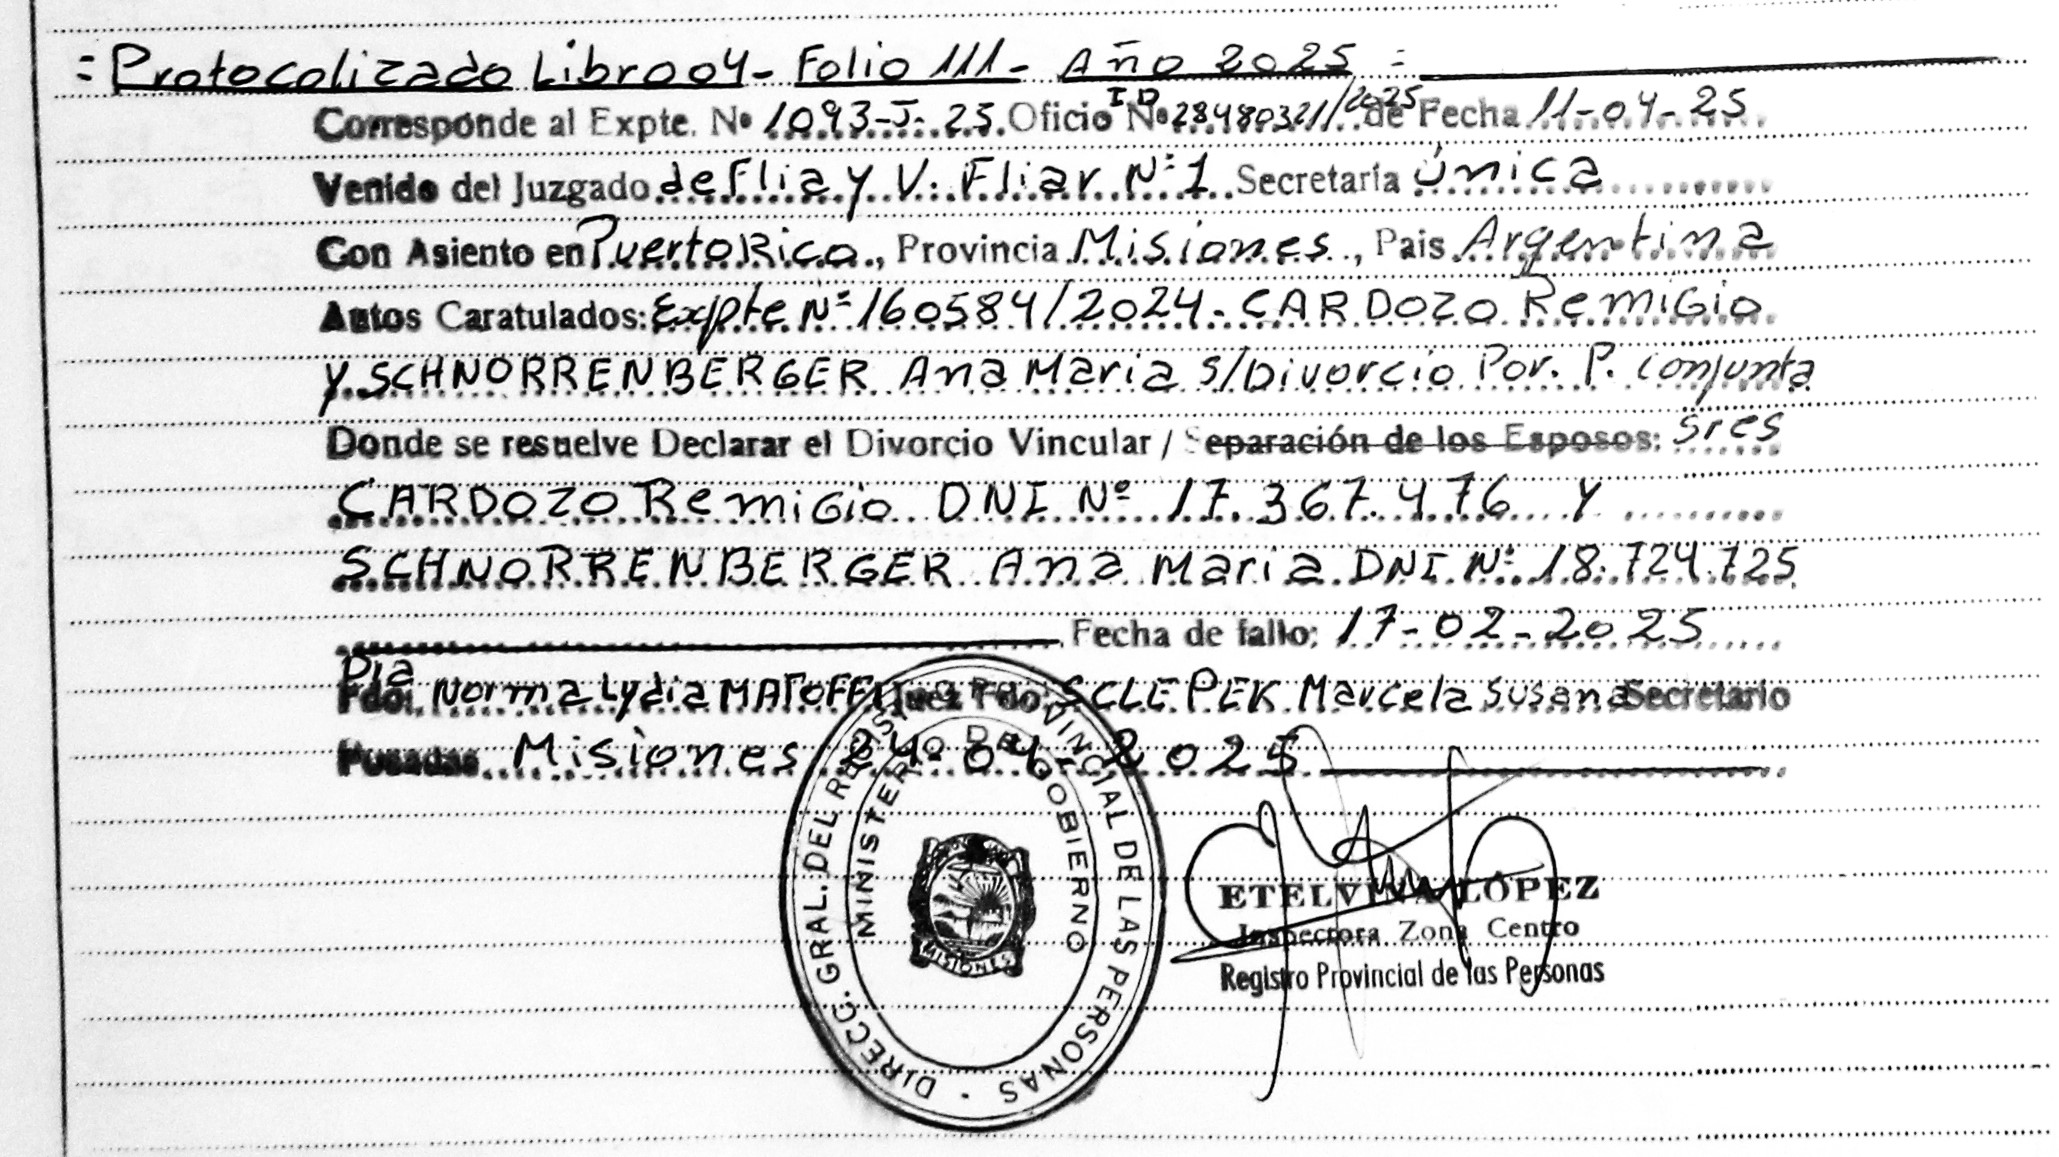 = Protocolizado Libro 04 - Folio 111 - Año 2025 =
Corresponde al Expte. Nº 1093-J-25. Oficio ID Nº 28480321/2025 de Fecha 11-04-25
Venido del Juzgado de Flia y V. Fliar Nº 1 Secretaría Única
Con Asiento en Puerto Rico, Provincia Misiones, Pais Argentina
Autos Caratulados: Expte Nº 160584/2024 - CARDOZO Remigio
y SCHNORRENBERGER Ana Maria s/Divorcio Por P. Conjunta
Donde se resuelve Declarar el Divorcio Vincular / Separación de los Esposos: Sres
CARDOZO Remigio DNI Nº 17.367.476 y
SCHNORRENBERGER Ana Maria DNI Nº 18.724.725
Fecha de fallo: 17-02-2025
Dra
Fdo: Norma Lydia Juez Fdo: SCLEPEK Marcela Susana Secretario
Posadas Misiones 24-04-2025
DIRECC. GRAL. DEL REGISTRO PROVINCIAL DE LAS PERSONAS
MINISTERIO DE GOBIERNO
MISIONES
ETELVINA LÓPEZ
Inspectora Zona Centro
Registro Provincial de las Personas